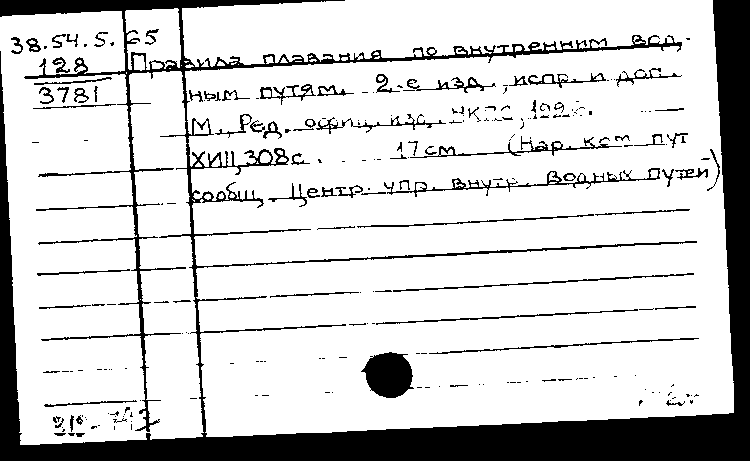 38.54.5. 65
128 Правила плавания по внутренним вод,-
3781 ным путям. 2-е изд., испр. и доп.
М., Ред. офиц. изд. НКПС,
XVIII, 308с. 17см. (Нар. ком пут
сообщ. Центр. упр. внутр. водных путей)